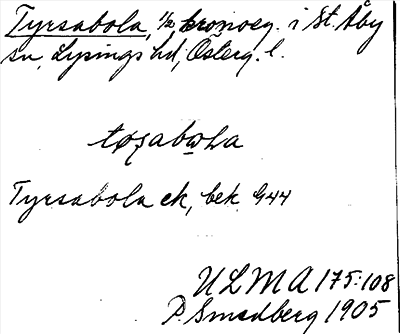 Tyrsabola, 1/2 kronoeg. i St. Åby
sn, Lysings hd, Österg. l.
tøʂabωLa
Tyrsabola ek, bek. G44
ULMA 175:108
P. Smedberg 1905